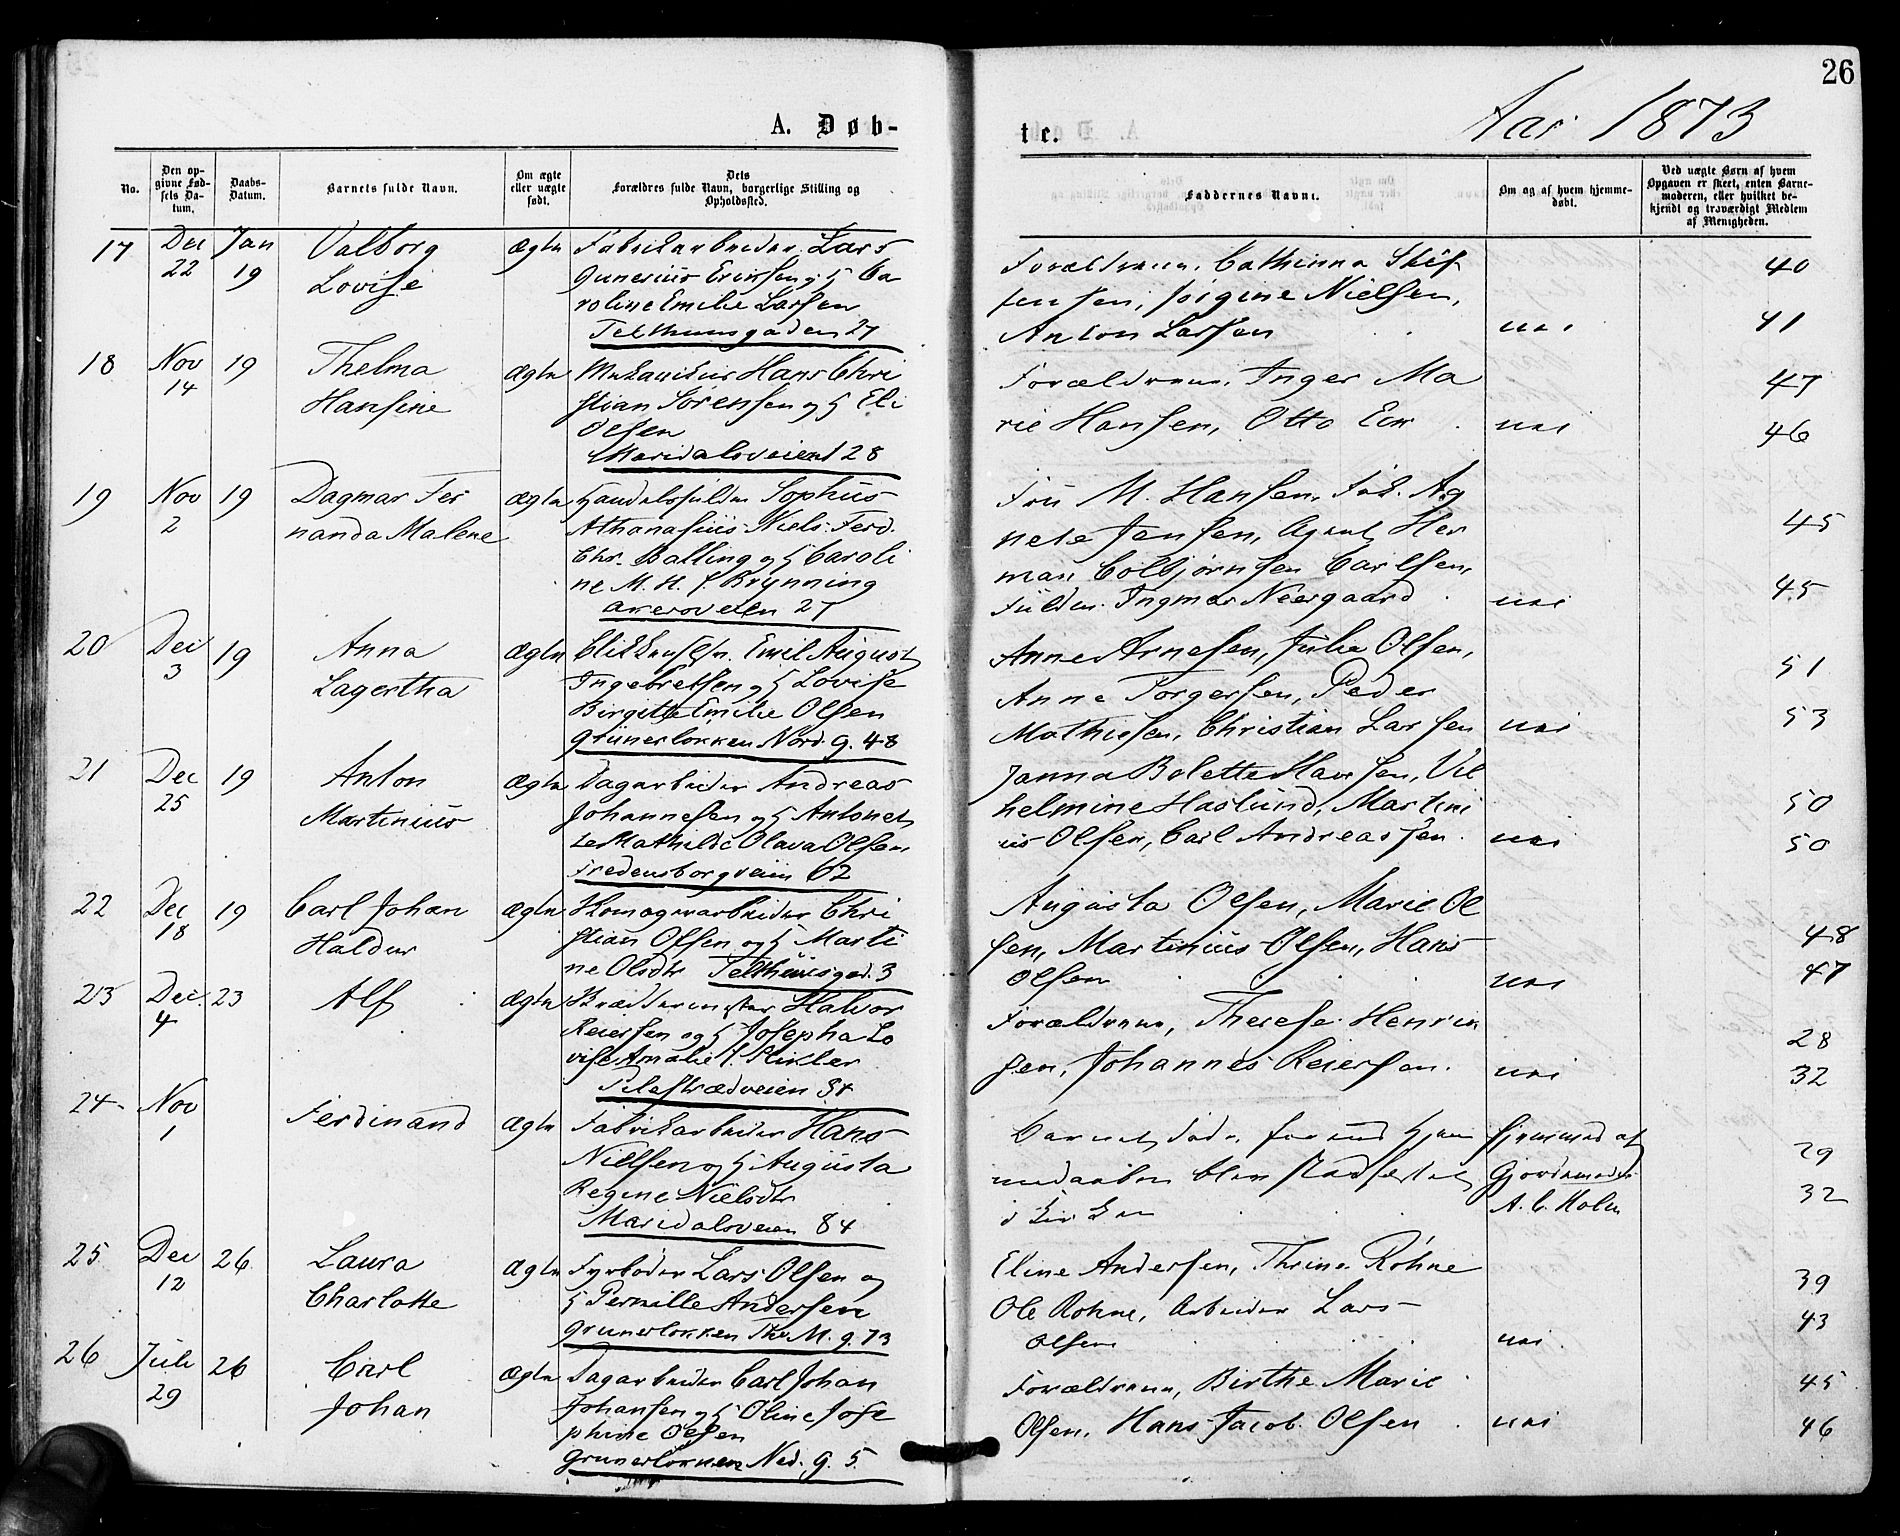 26
A. Døb-
te.
Aar 1873
No.
Den opgivne Fødsels Datum.
Daabs-Datum.
Barnets fulde Navn.
Om ægte eller uægte født.
Dets Forældres fulde Navn, borgerlige Stilling og Opholdssted.
Faddernes Navne.
Om og af hvem hjemmedøbt.
Ved uægte Børn af hvem Opgaven er skeet, enten Barnemoderen, eller hvilket bekjendt og troværdigt Medlem af Menigheden.
17 Dec 22 Jan 19 Valborg Lovise Ægte
Fabrikarbeider Lars
Gunerius Eriksen og H Ca
roline Emilie Larsen
Telthuusgaden 27
Forældrene, Cathinna Stef
fensen, Jørgine Nielsen,
Anton Larsen nei
40
41
18 Nov 14 19 Thelma Hansine Ægte
Mekanikus Hans Chri
stian Sørensen og H Eli
Olsen
Maridalsveien 128
Forældrene, Inger Ma
rie Hansen, Otto nei
47
46
19 Nov 2 19 Dagmar Fer
nanda Malene Ægte
Handelsfuldm Sophus
Athanasius Niels Ferd.
Chr. Balling og H Caroli
ne M. H. f. Brynning
Akersveien 27
Fru M. Hansen, Frk. Ag
nete Jensen, Agent Her
man Colbjørnsen Carlsen,
Fuldm. Ingmar Neergaard nei
45
45
20 Dec 3 19 Anna Lagertha Ægte
Blikkensl. Emil August
Ingebretsen og H Lovise
Birgitte Emilie Olsen
Grünerløkken Nord. g. 48
Anne Arnesen, Julie Olsen,
Anne Torgersen, Peder
Mathiesen, Christian Larsen nei
51
53
21 Dec 25 19 Anton Martinius Ægte
Dagarbeider Andreas
Johannesen og H Antonet
te Mathilde Olava Olsen
Fredensborgveien 62
Janna Bolette Hansen, Vil
helmine Haslund, Martini
us Olsen, Carl Andreassen nei
50
50
22 Dec 18 19 Carl Johan Haldur Ægte
Skomagerarbeider Chri
stian Olsen og H Marti
ne Olsdtr Telthuusgad. 3
Augusta Olsen, Marie Ol
sen, Martinius Olsen, Hans
Olsen nei
48
47
23 Dec. 4 23 Alf Ægte
Halvor
Reiersen og H Josepha Lo
vise Amalie f.
Pilestrædveien 34
Forældrene, Therese Henrik
sen, Johannes Reiersen. nei
28
32
24 Nov 1 Ferdinand Ægte
Fabrikarbeider Hans
Nielsen og H Augusta
Regine Nielsdtr
Maridalsveien 84
Barnet døde før end Hjem
medaaben blev stadfæstet
i Kirken
Hjemmed af
Gjordemoder
A. C. Holm
29
32
25 Dec 12 26 Laura Charlotte Ægte
Fyrbøder Lars Olsen og
H Pernille Andersen
Grünerløkken Thv. M. g. 73
Eline Andersen, Thrine Røhne
Ole Røhne, Arbeider Lars
Olsen nei.
39
43
26 Juli 29 26 Carl Johan Ægte
Dagarbeider Carl Johan
Johansen og H Oline Jose
phine Olsen
Grünerløkken Ned. g. 5
Forældrene, Birthe Marie
Olsen, Hans Jacob Olsen nei
45
46